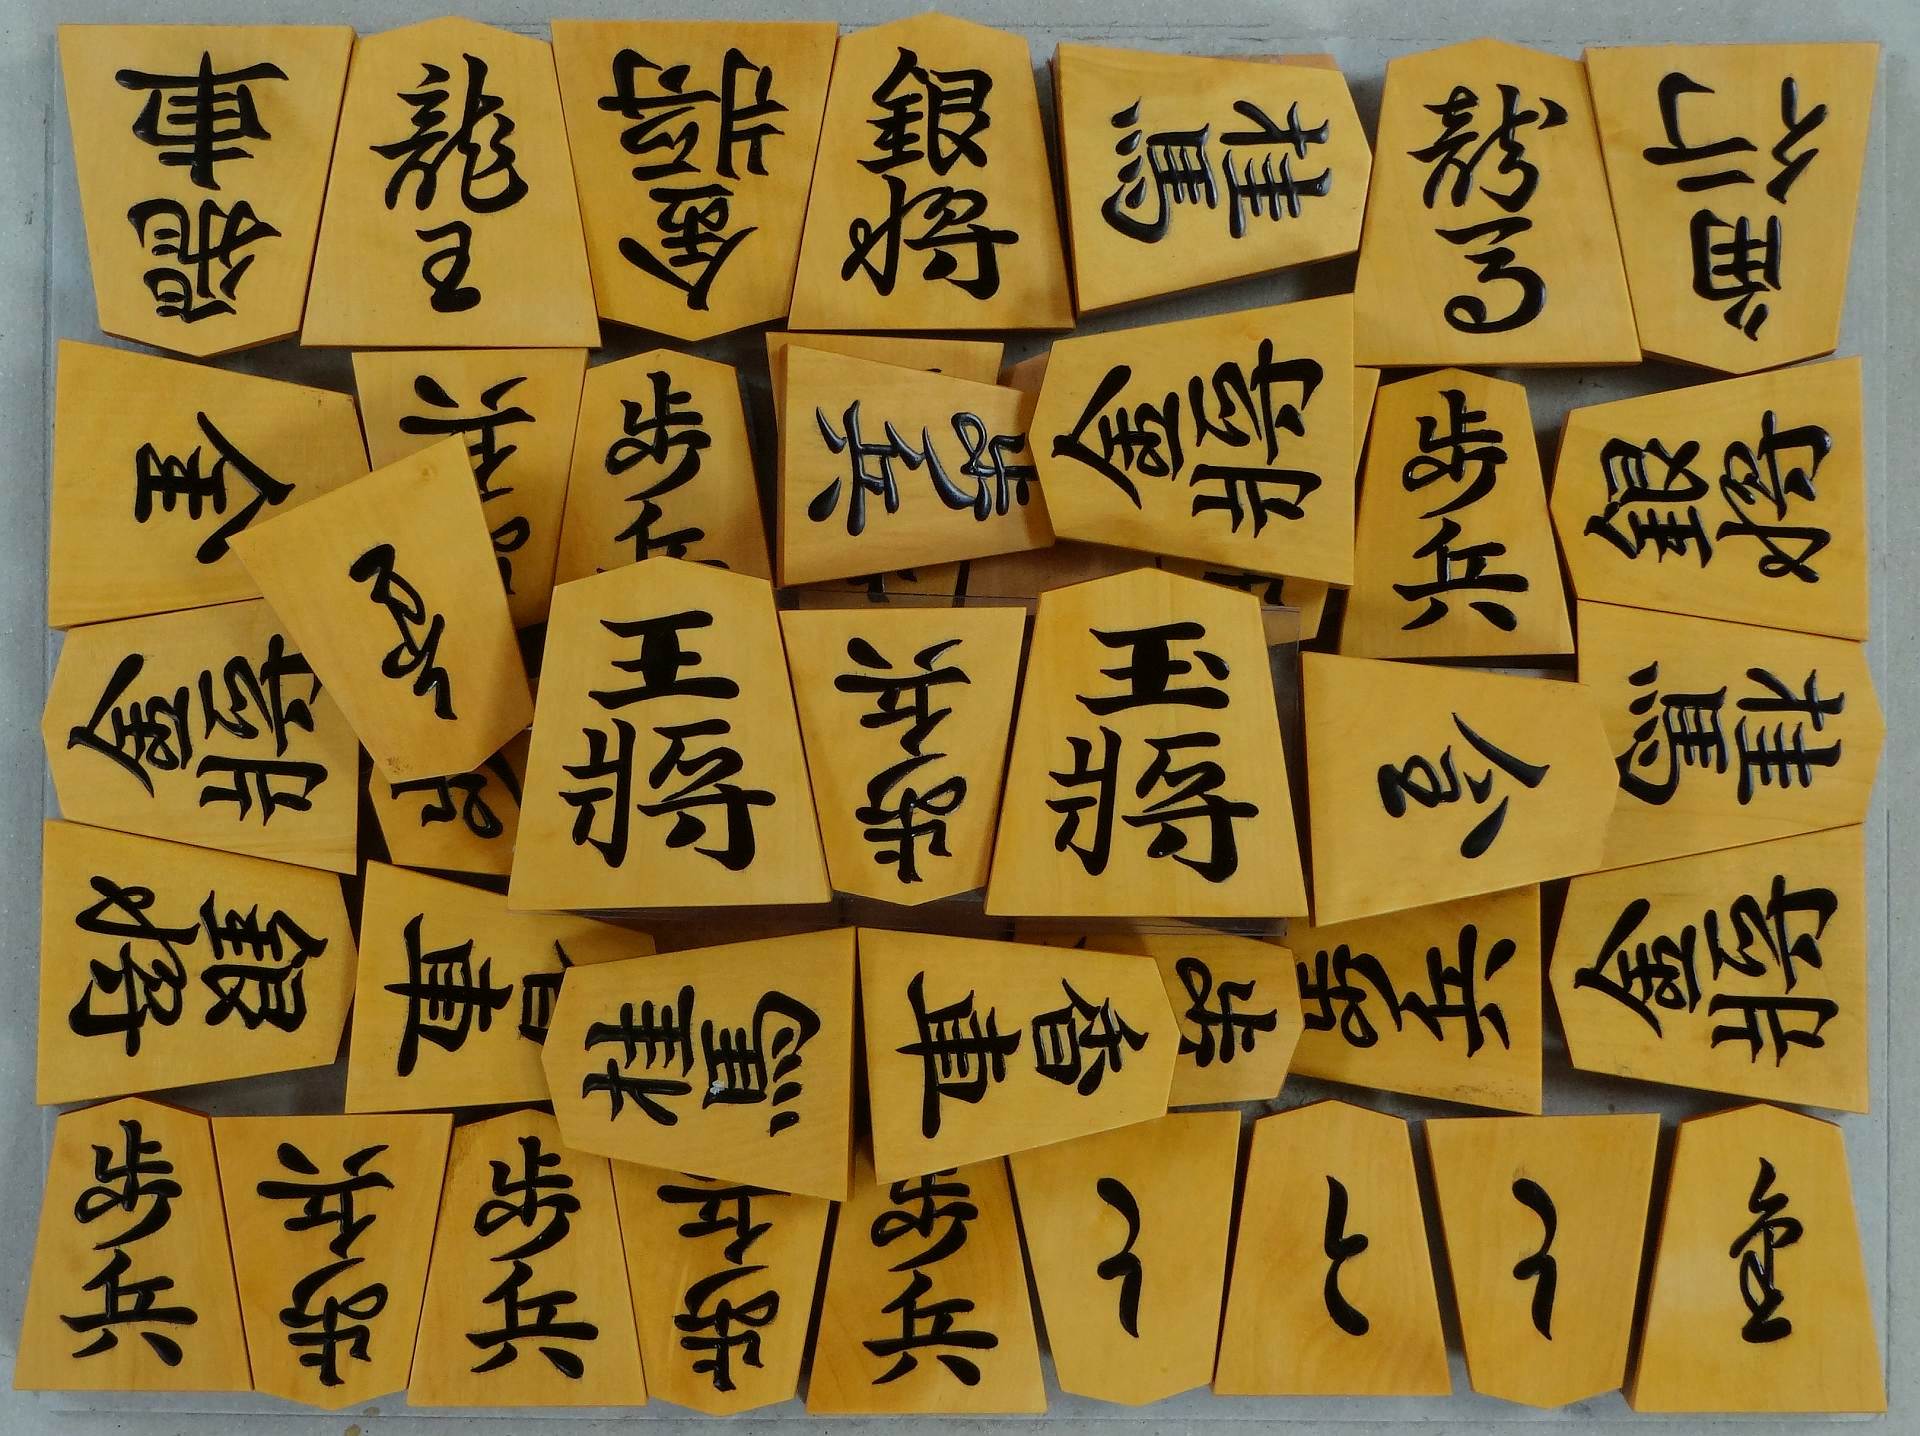 飛車
龍王
金将
銀将
桂馬
龍馬
角行
金
歩兵
歩兵
金将
歩兵
銀将
金将
王将
歩兵
玉将
桂馬
銀将
香車
桂馬
香車
歩
歩兵
金将
歩兵
歩兵
歩兵
歩兵
歩兵
と
と
と